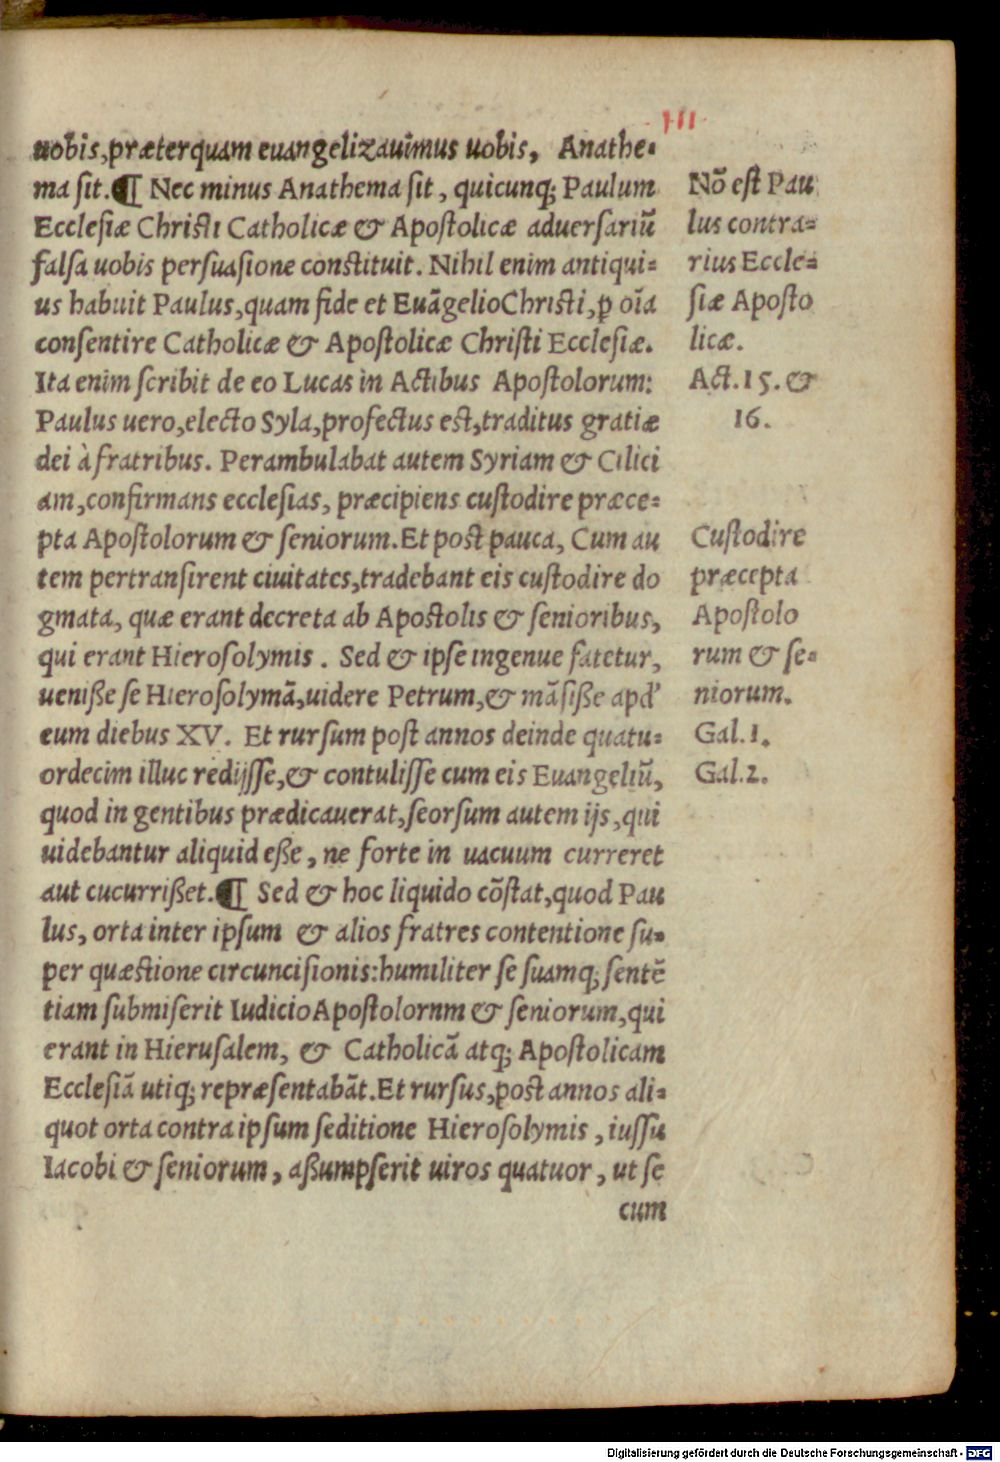 III
uobis, præterquam euangelizauimus uobis, Anathe-
ma sit. ¶ Nec minus Anathema sit, quicunq; Paulum
Ecclesiæ Christi Catholicæ & Apostolicæ aduersariũ
falsa uobis persuasione constituit. Nihil enim antiqui-
us habuit Paulus, quam fide et Euãgelio Christi, ꝑ oĩa
consentire Catholicæ & Apostolicæ Christi Ecclesiæ.
Ita enim scribit de eo Lucas in Actibus Apostolorum:
Paulus uero, electo Syla, profectus est, traditus gratiæ
dei à fratribus. Perambulabat autem Syriam & Cilici
am, confirmans ecclesias, præcipiens custodire præce-
pta Apostolorum & seniorum. Et post pauca, Cum au
tem pertransirent ciuitates, tradebant eis custodire do
gmata, quæ erant decreta ab Apostolis & senioribus,
qui erant Hierosolymis. Sed & ipse ingenue fatetur,
ueniße se Hierosolymã, uidere Petrum, & mãsiße apd'
eum diebus XV. Et rursum post annos deinde quatu-
ordecim illuc redijsse, & contulisse cum eis Euangeliũ,
quod in gentibus prædicauerat, seorsum autem ijs, qui
uidebantur aliquid eße, ne forte in uacuum curreret
aut cucurrißet. ¶ Sed & hoc liquido cõstat, quod Pau
lus, orta inter ipsum & alios fratres contentione su-
per quæstione circuncisionis: humiliter se suamq; sentẽ
tiam submiserit Iudicio Apostolornm & seniorum, qui
erant in Hierusalem, & Catholicã atq; Apostolicam
Ecclesiã utiq; repræsentabãt. Et rursus, post annos ali-
quot orta contra ipsum seditione Hierosolymis, iussu
Iacobi & seniorum, aßumpserit uiros quatuor, ut se
cum
Nõ est Pau
lus contra-
rius Eccle-
siæ Aposto
licæ.
Act. 15. &
16.
Custodire
præcepta
Apostolo
rum & se-
niorum.
Gal. 1.
Gal. 2.
Digitalisierung gefördert durch die Deutsche Forschungsgemeinschaft - DFG